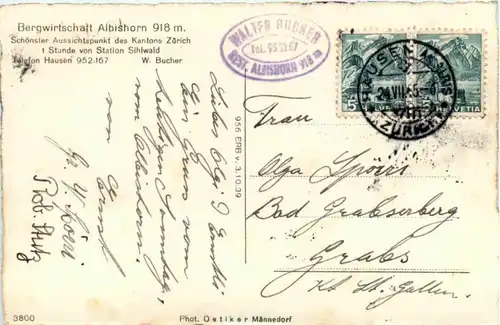 Bergwirtschaft Albishorn 918 m.
Schönster Aussichtspunkt des Kantons Zürich
1 Stunde von Station Sihlwald
Telefon Hausen 952.167 W. Bucher
WALTER BUCHER
Tel. 95 21 67
REST. ALBISHORN 918 m
HAUSEN
24.VII
(ZÜRICH)
5
HELVETIA
5
HELVETIA
Liebes Olgi
Ein Gruss vom
heutigen Sonntag
vom Albishorn.
von Ernst
Rob. Hutz
956 ERB v. 3.10.39
Frau
Olga Spörri
Bad Grabserberg
Grabs
Kt. St. Gallen.
3800
Phot. Oetiker Männedorf